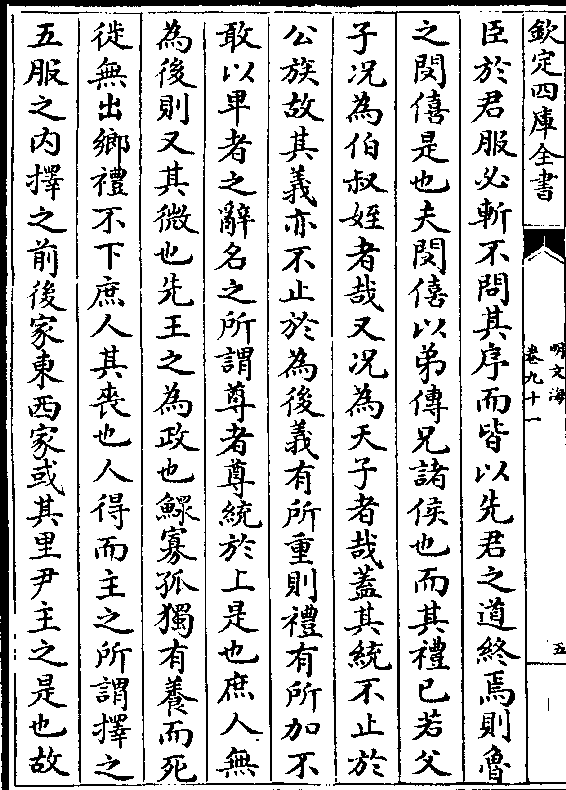 欽定四庫全書
明文海
卷九十一
五
臣於君服必斬不問其序而皆以先君之道終焉則魯
之閔僖是也夫閔僖以弟傳兄諸侯也而其禮已若父
子况為伯叔姪者哉又况為天子者哉蓋其統不止於
公族故其義亦不止於為後義有所重則禮有所加不
敢以卑者之辭名之所謂尊者尊統於上是也庶人無
為後則又其微也先王之為政也鰥寡孤獨有養而死
徙無出鄉禮不下庶人其喪也人得而主之所謂擇之
五服之内擇之前後家東西家或其里尹主之是也故